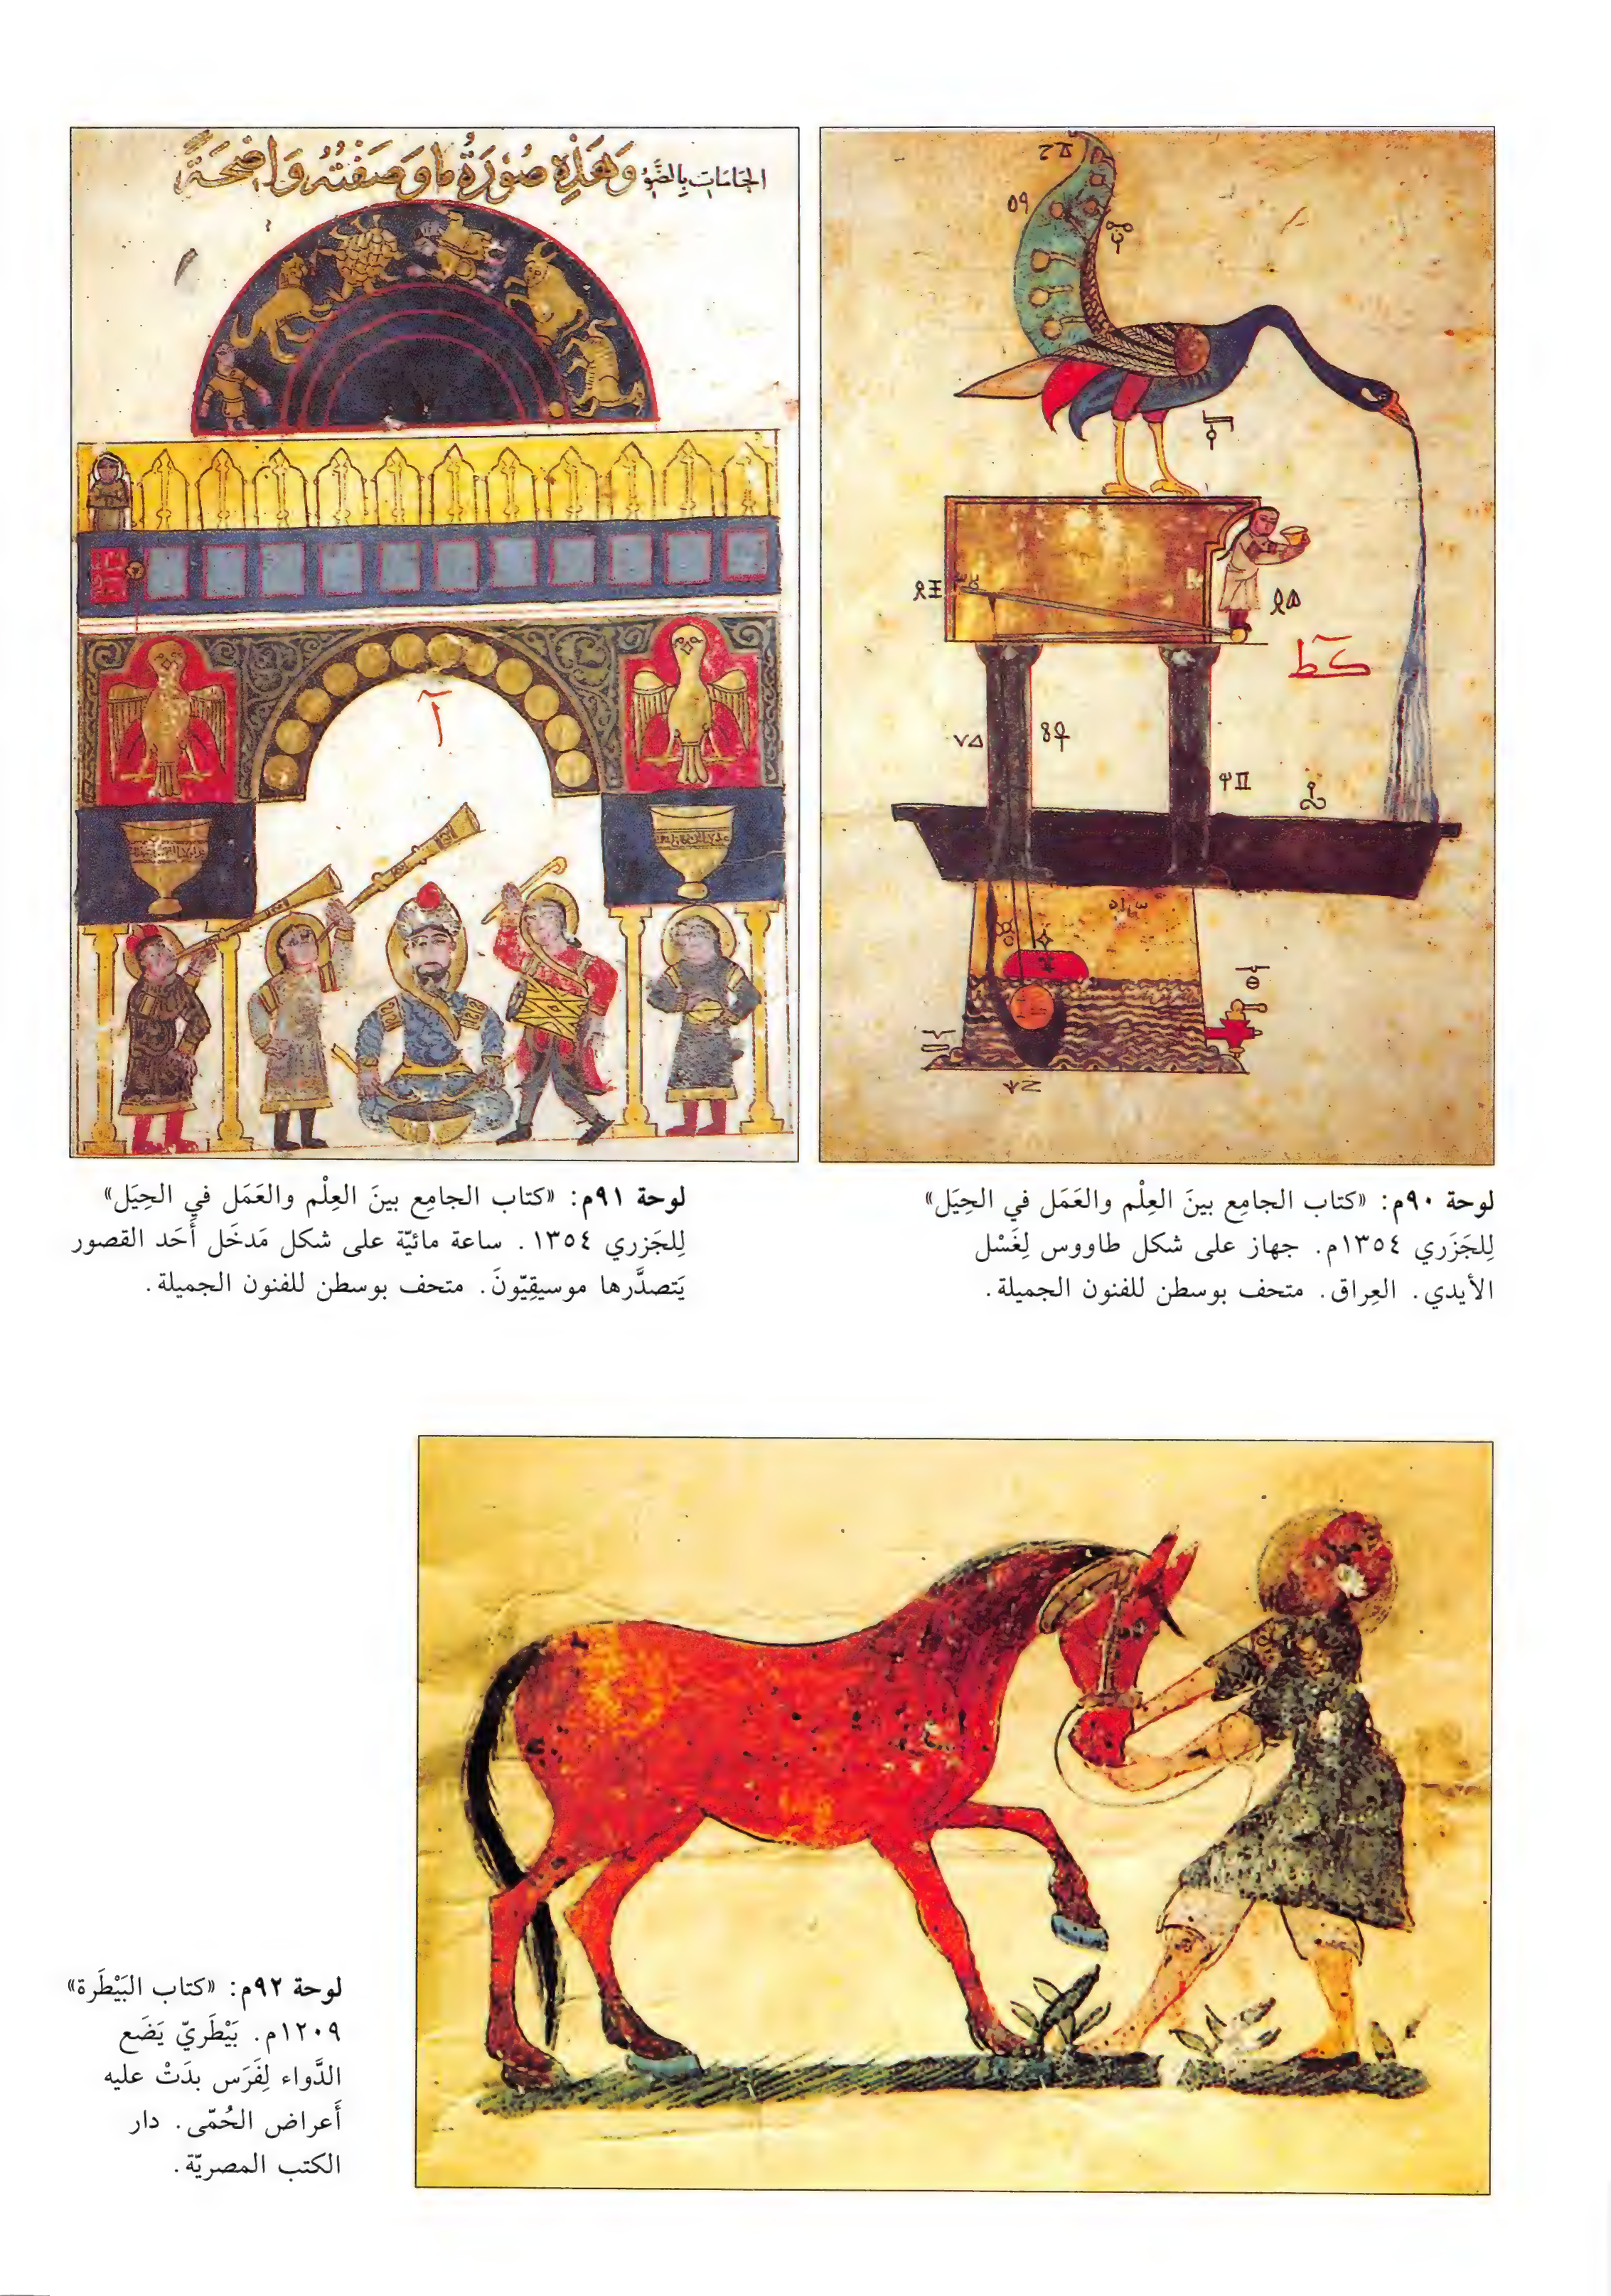 الجَامَاتِ بِالضَّوِ وَهَذِهِ صُوْرَةُ مَا وَصَفْتُهُ وَاضِحَةً
لوحة ٩٠م: «كتاب الجامِع بينَ العِلْم والعَمَل في الحِيَل»
لِلجَزَري ١٣٥٤م. جهاز على شكل طاووس لِغَسْل
الأيدي. العِراق. متحف بوسطن للفنون الجميلة.
لوحة ٩١م: «كتاب الجامِع بينَ العِلْم والعَمَل في الحِيَل»
لِلجَزري ١٣٥٤. ساعة مائيّة على شكل مَدخَل أَحَد القصور
يَتصدَّرها موسيقِيّونَ. متحف بوسطن للفنون الجميلة.
لوحة ٩٢م: «كتاب البَيْطَرة»
١٢٠٩م. بَيْطَريّ يَضَع
الدَّواء لِفَرَس بدَتْ عليه
أَعراض الحُمّى. دار
الكتب المصريّة.